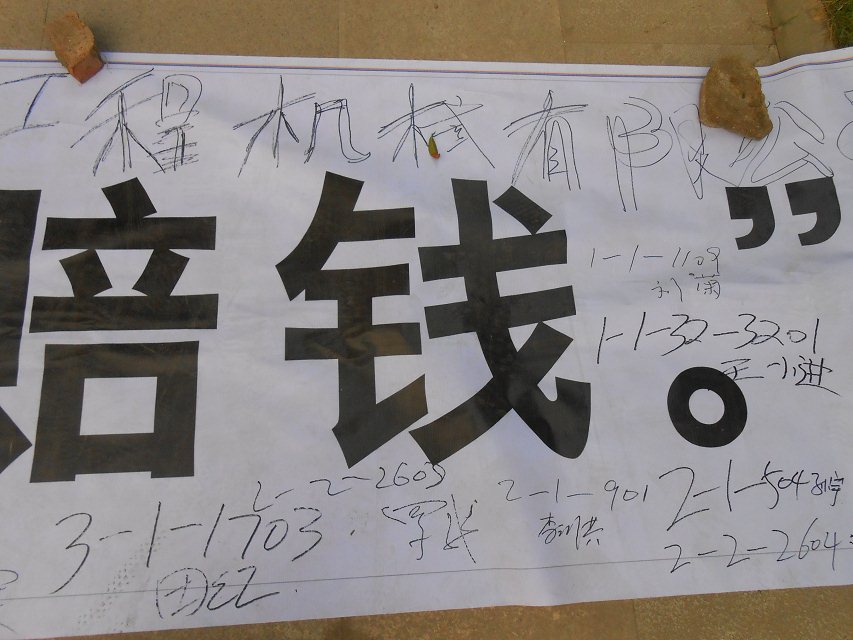 工程机械有限公
赔钱。”
1-1-1109
1-1-32-3201
王小进
2-2-2603
2-1-901
2-1-504
3-1-1703
2-2-2604